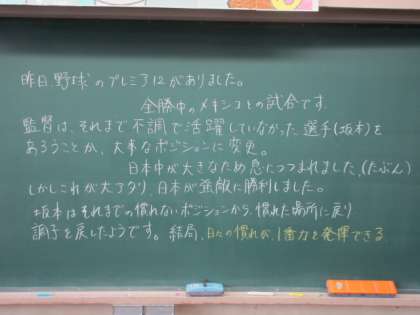 昨日、野球のプレミア12がありました。
全勝中のメキシコとの試合です。
監督は、それまで不調で活躍していなかった選手(坂本)を
あろうことか、大事なポジションに変更。
日本中が大きなため息につつまれました、(たぶん)
しかしこれが大アタリ、日本が無敵に勝利しました。
坂本はそれまでの慣れないポジションから、慣れた場所に戻り
調子を戻したようです。結局、日々の慣れが、1番力を発揮できる